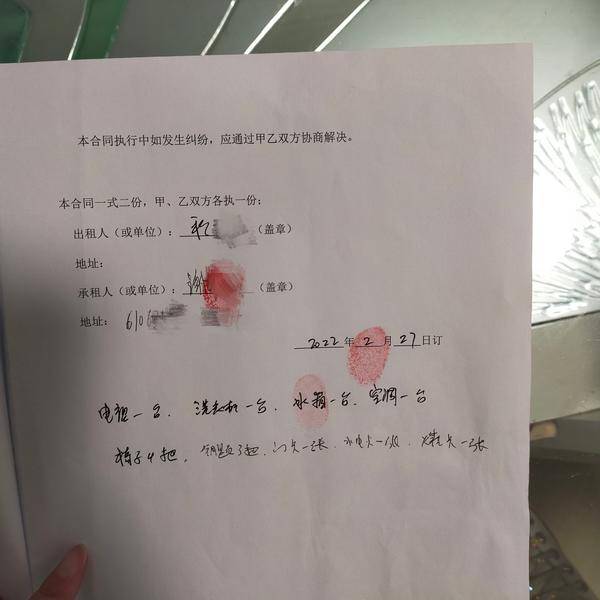 本合同执行中如发生纠纷，应通过甲乙双方协商解决。
本合同一式二份，甲、乙双方各执一份；
出租人（或单位）：（盖章）
地址：
承租人（或单位）：（盖章）
地址：610
2022年2月27日订
电视一台、洗衣机一台、冰箱一台、空调一台
椅子4把、钥匙3把、门卡一张、水电卡一张、煤卡一张